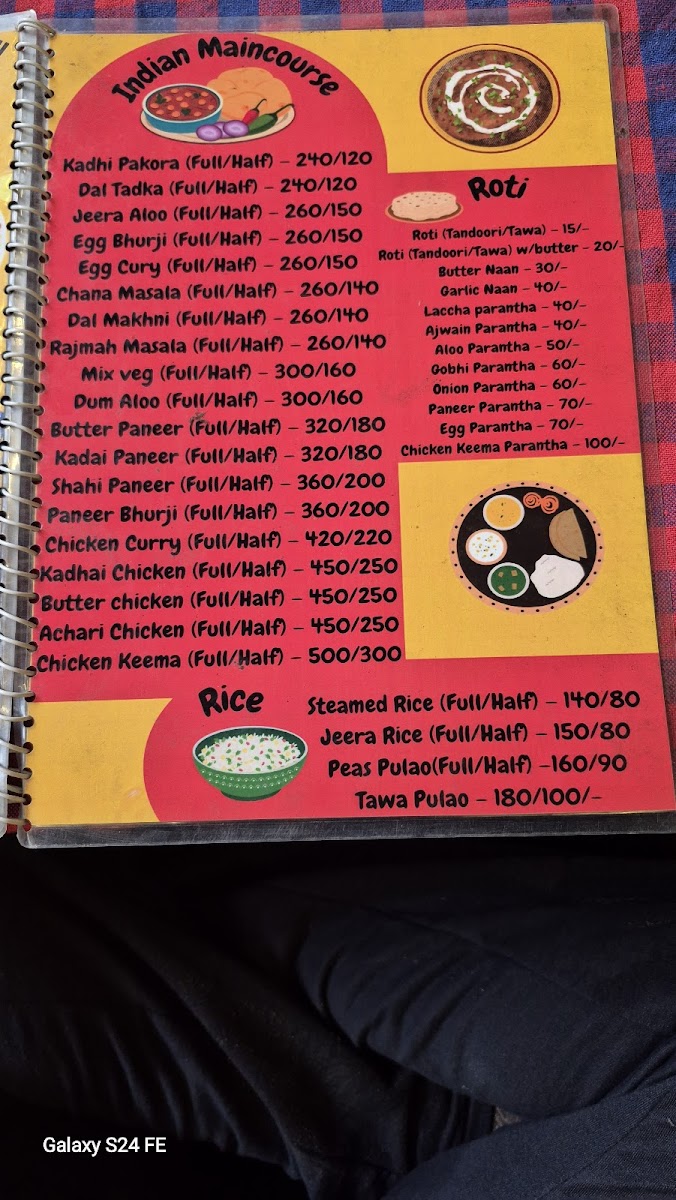 Indian Maincourse
Kadhi Pakora (Full/Half) – 240/120
Dal Tadka (Full/Half) – 240/120
Jeera Aloo (Full/Half) – 260/150
Egg Bhurji (Full/Half) – 260/150
Egg Cury (Full/Half) – 260/150
Chana Masala (Full/Half) – 260/140
Dal Makhni (Full/Half) – 260/140
Rajmah Masala (Full/Half) – 260/140
Mix veg (Full/Half) – 300/160
Dum Aloo (Full/Half) – 300/160
Butter Paneer (Full/Half) – 320/180
Kadai Paneer (Full/Half) – 320/180
Shahi Paneer (Full/Half) – 360/200
Paneer Bhurji (Full/Half) – 360/200
Chicken Curry (Full/Half) – 420/220
Kadhai Chicken (Full/Half) – 450/250
Butter chicken (Full/Half) – 450/250
Achari Chicken (Full/Half) – 450/250
Chicken Keema (Full/Half) – 500/300
Roti
Roti (Tandoori/Tawa) – 15/–
Roti (Tandoori/Tawa) w/butter – 20/–
Butter Naan – 30/–
Garlic Naan – 40/–
Laccha parantha – 40/–
Ajwain Parantha – 40/–
Aloo Parantha – 50/–
Gobhi Parantha – 60/–
Onion Parantha – 60/–
Paneer Parantha – 70/–
Egg Parantha – 70/–
Chicken Keema Parantha – 100/–
Rice
Steamed Rice (Full/Half) – 140/80
Jeera Rice (Full/Half) – 150/80
Peas Pulao(Full/Half) –160/90
Tawa Pulao – 180/100/–
Galaxy S24 FE